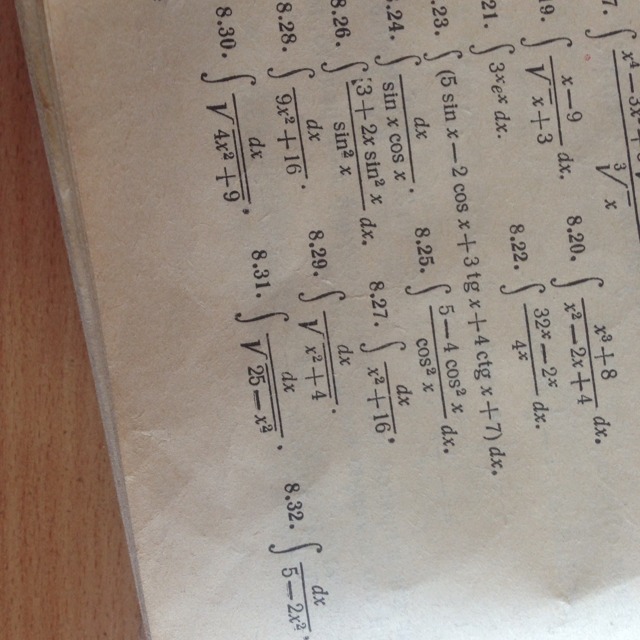 7. ∫ x⁴ − 3x² + / ∛x
9. ∫ (x−9)/(√x+3) dx. 8.20. ∫ (x³+8)/(x²−2x+4) dx.
21. ∫ 3ˣeˣ dx. 8.22. ∫ (32ˣ−2ˣ)/4ˣ dx.
23. ∫ (5 sin x−2 cos x+3 tg x+4 ctg x+7) dx.
24. ∫ dx/(sin x cos x). 8.25. ∫ (5−4 cos² x)/cos² x dx.
8.26. ∫ (3+2x sin² x)/sin² x dx. 8.27. ∫ dx/(x²+16).
8.28. ∫ dx/(9x²+16). 8.29. ∫ dx/√(x²+4).
8.30. ∫ dx/√(4x²+9). 8.31. ∫ dx/√(25−x²). 8.32. ∫ dx/(5−2x²).